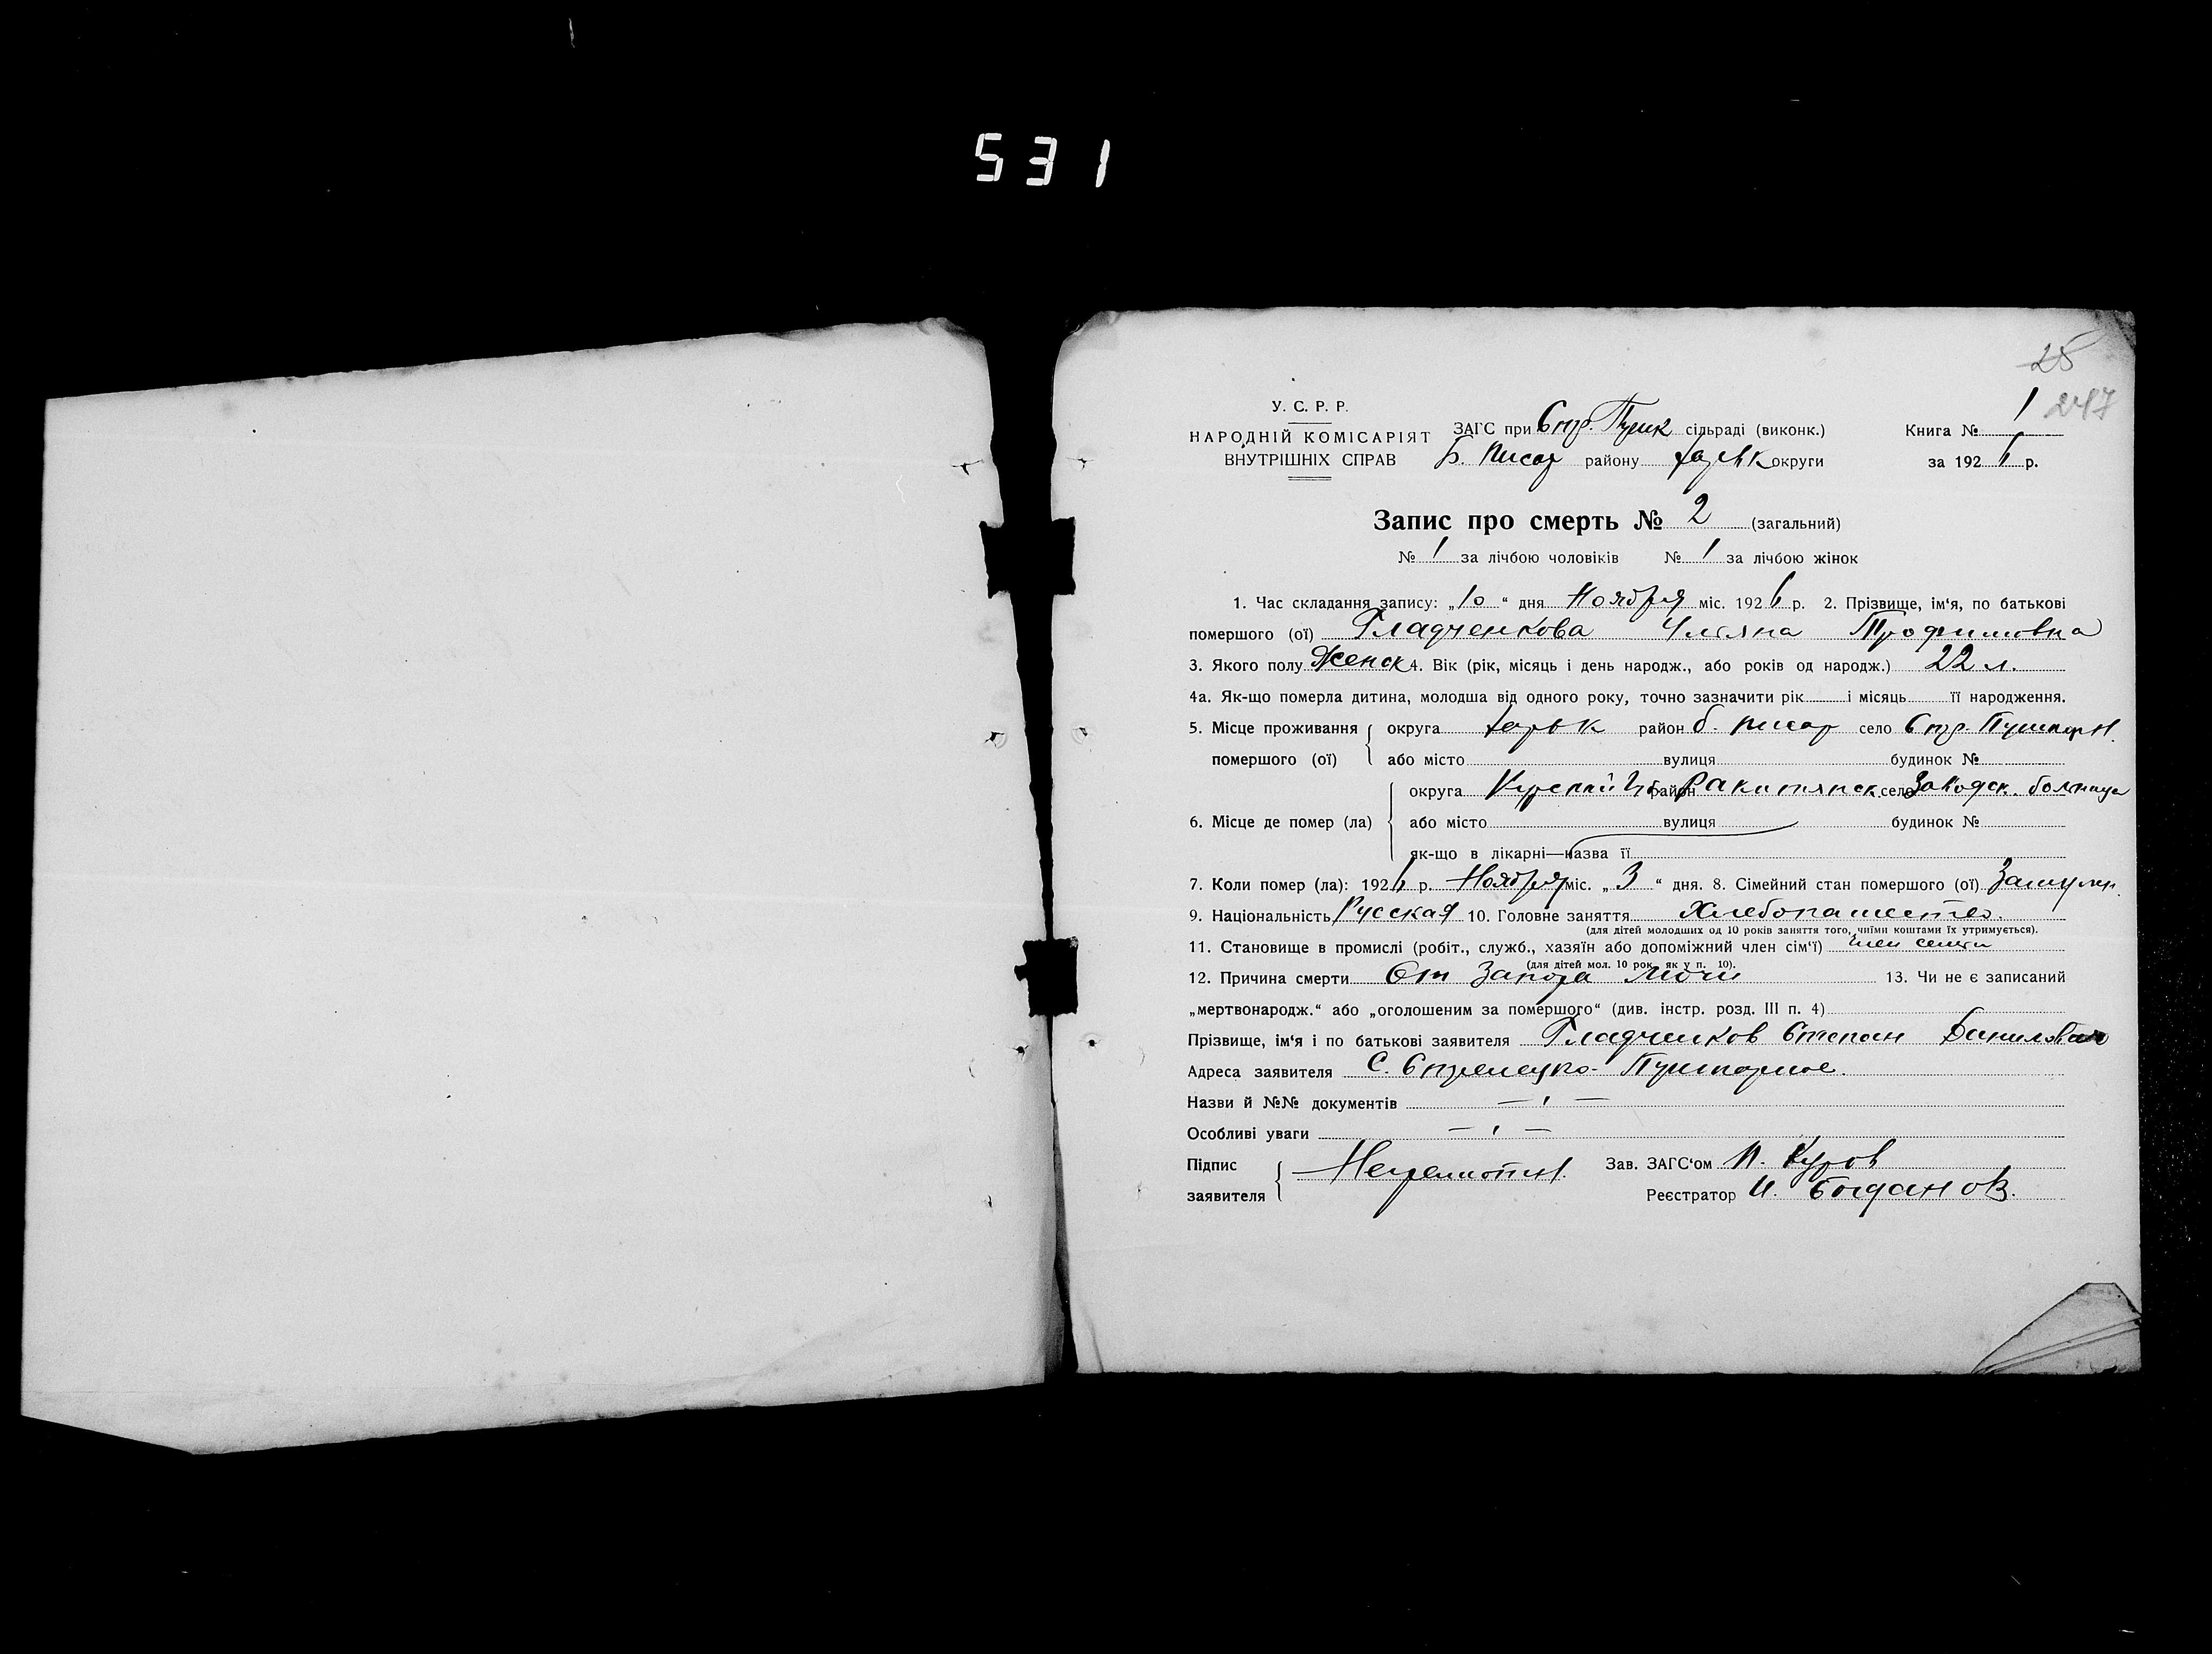 531
25
247
У. С. Р. Р.
НАРОДНІЙ КОМІСАРІЯТ
ВНУТРІШНІХ СПРАВ
ЗАГС при Стр. Пушк сільраді (виконк.)
Б. Писар району Харьк округи
Книга № 1
за 1926 р.
Запис про смерть № 2 (загальний)
№ 1 за лічбою чоловіків № 1 за лічбою жінок
1. Час складання запису: „10“ дня Ноября міс. 1926 р. 2. Прізвище, ім‘я, по батькові
помершого (ої) Гладченкова Улияна Трофимовна
3. Якого полу Женск 4. Вік (рік, місяць і день народж., або років од народж.) 22 л.
4а. Як-що померла дитина, молодша від одного року, точно зазначити рік і місяць її народження.
5. Місце проживання помершого (ої) округа Харьк район б. писар село Стр. Пушкарн.
або місто вулиця будинок №
6. Місце де помер (ла) округа Курской Губ район Ракитянск село Заводск. больница
або місто вулиця будинок №
як-що в лікарні—назва її
7. Коли помер (ла): 1926 р. Ноября міс. „3“ дня. 8. Сімейний стан помершого (ої) Замужн.
9. Національність Русская 10. Головне заняття Хлебопашество.
(для дітей молодших од 10 років заняття того, чиїми коштами їх утримується).
11. Становище в промислі (робіт., служб., хазяїн або допоміжний член сім‘ї) член семьи
(для дітей мол. 10 рок. як у п. 10).
12. Причина смерти От Запора Мочи 13. Чи не є записаний
„мертвонародж.“ або „оголошеним за помершого“ (див. інстр. розд. III п. 4)
Прізвище, ім‘я і по батькові заявителя Гладченков Степан Данилович
Адреса заявителя С. Стрелецко-Пушкарное.
Назви й №№ документів — „ —
Особливі уваги — „ —
Підпис заявителя Неграмотн. Зав. ЗАГС‘ом Куров
Реєстратор И. Богданов.